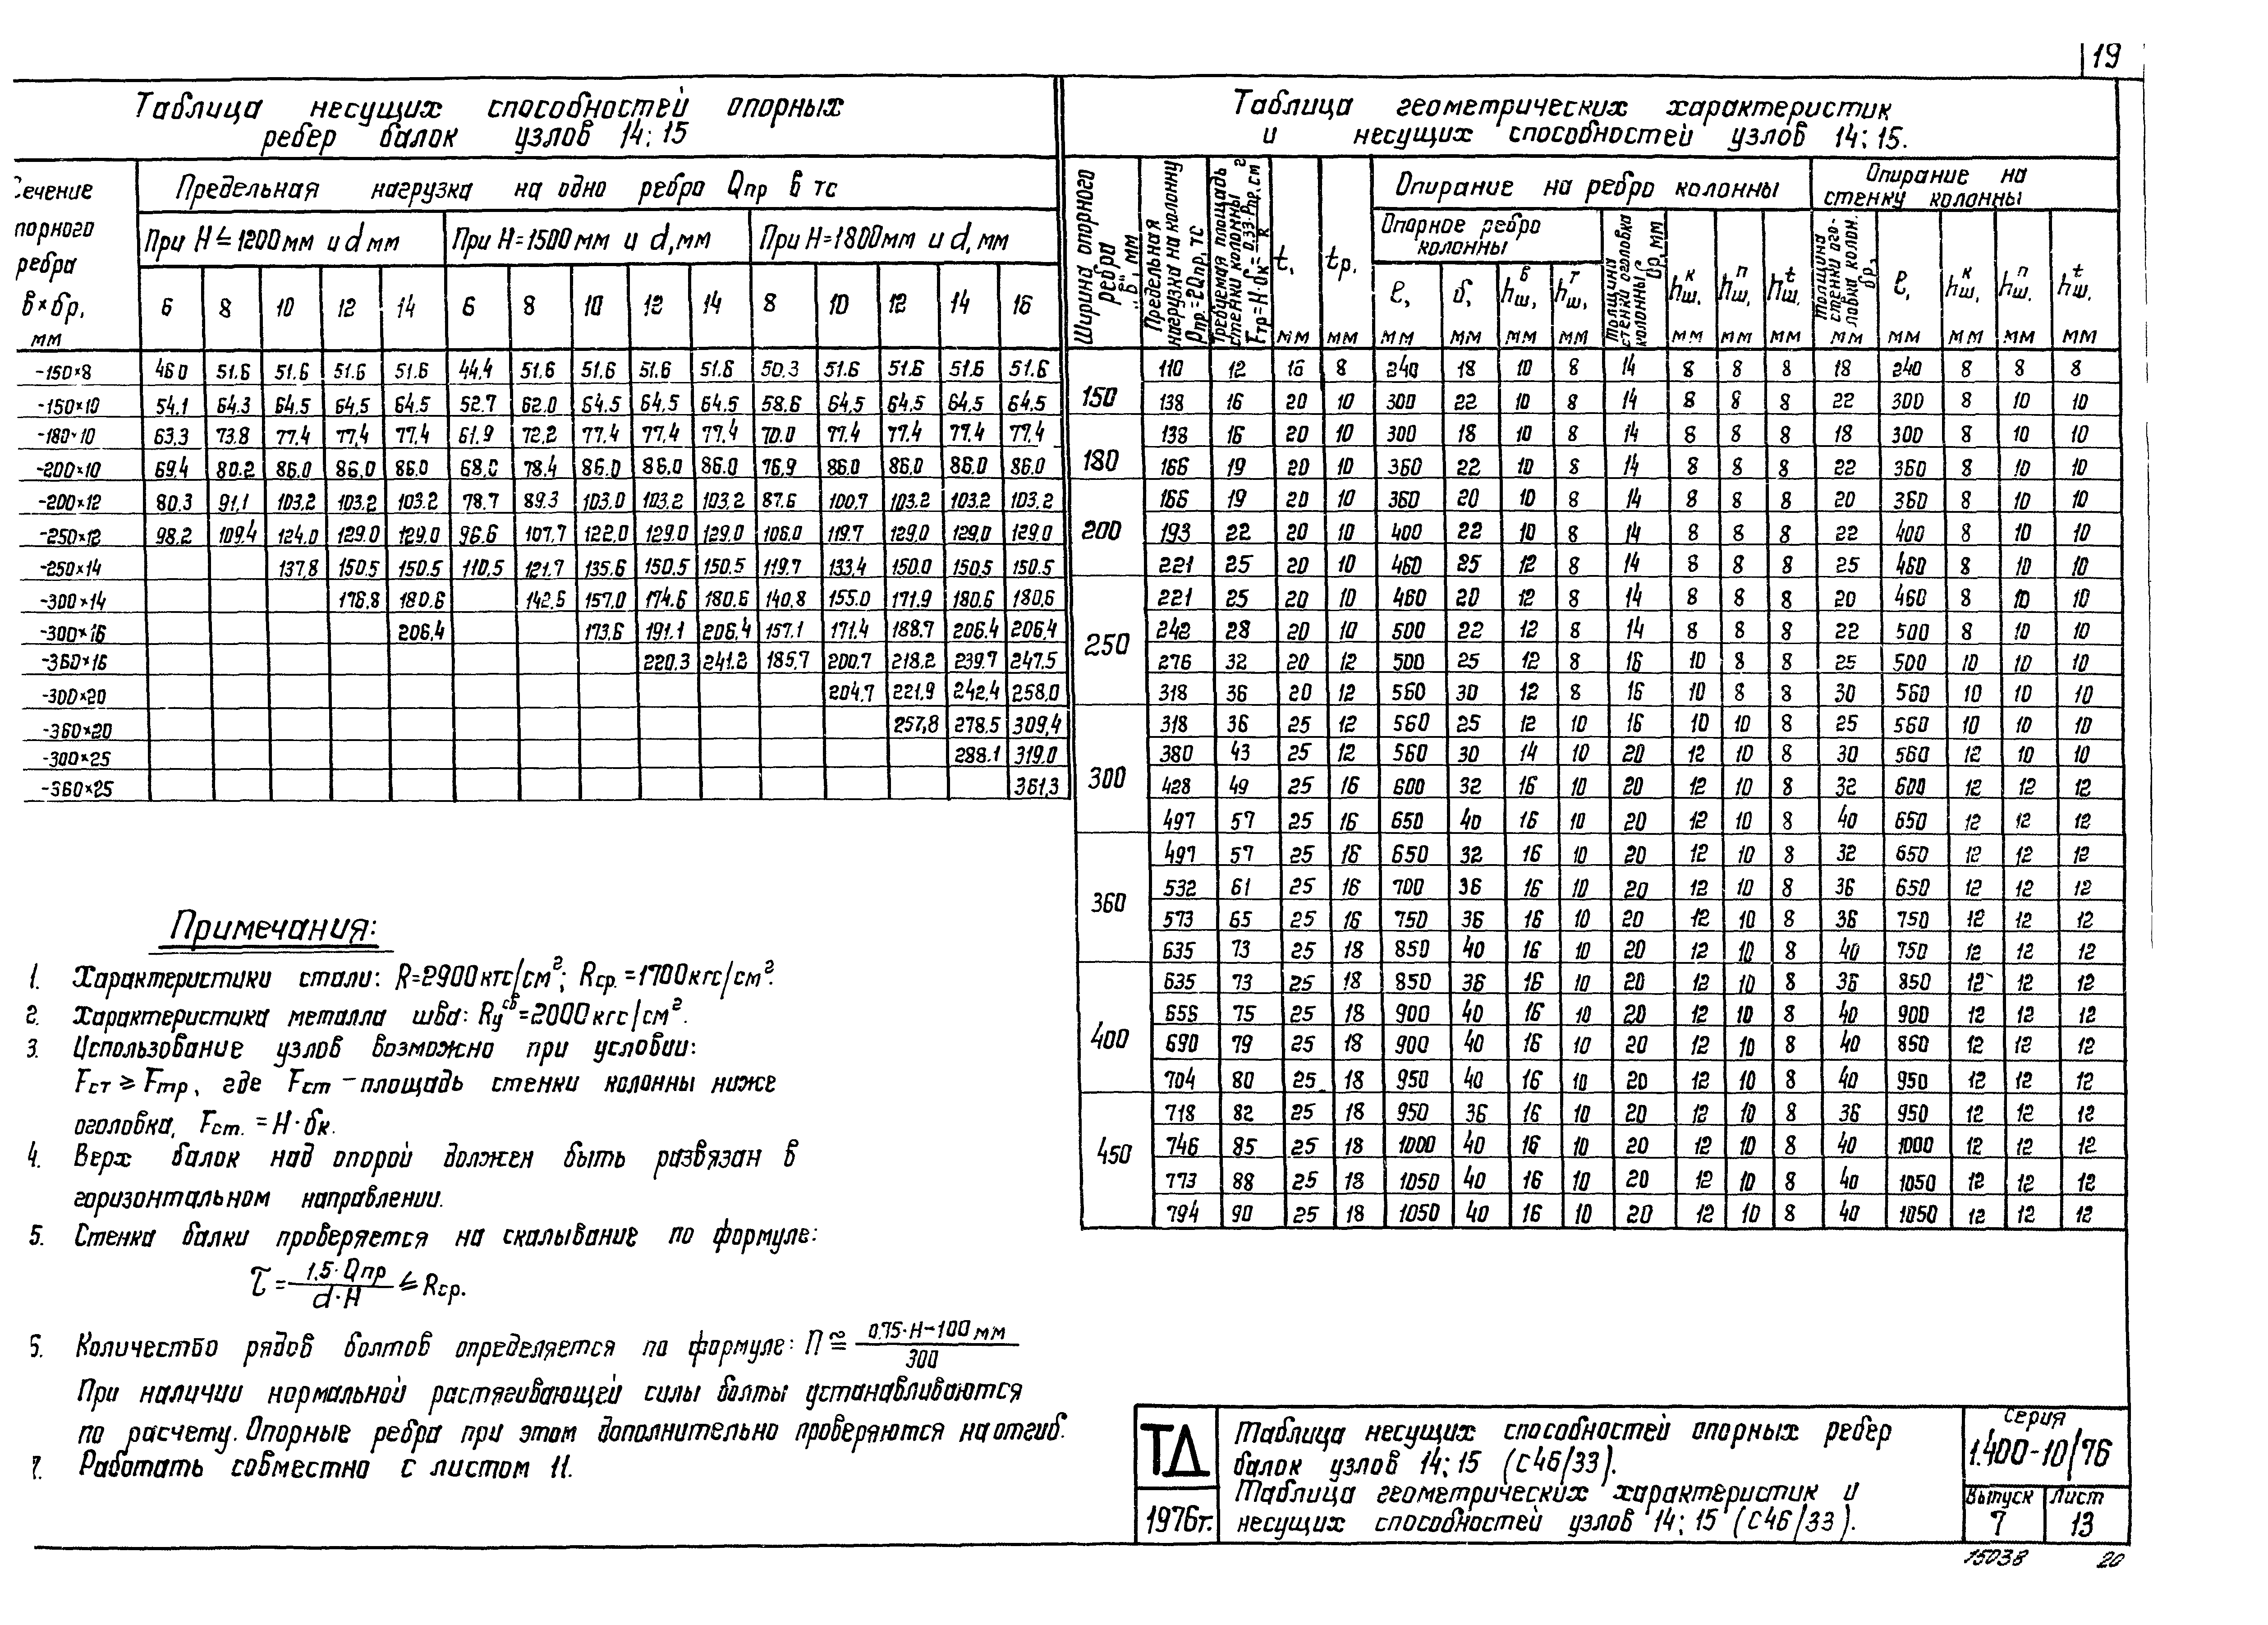 19
Таблица несущих способностей опорных
ребер балок узлов 14; 15
Сечение опорного ребра в×δр, мм
Предельная нагрузка на одно ребро Qпр в тс
При H ≤ 1200мм и d мм | При H=1500мм и d, мм | При H=1800мм и d, мм
6 8 10 12 14 6 8 10 12 14 8 10 12 14 16
-150×8 46.0 51.6 51.6 51.6 51.6 44.4 51.6 51.6 51.6 51.6 50.3 51.6 51.6 51.6 51.6
-150×10 54.1 64.3 64.5 64.5 64.5 52.7 62.0 64.5 64.5 64.5 58.6 64.5 64.5 64.5 64.5
-180×10 63.3 73.8 77.4 77.4 77.4 61.9 72.2 77.4 77.4 77.4 70.0 77.4 77.4 77.4 77.4
-200×10 69.4 80.2 86.0 86.0 86.0 68.0 78.4 86.0 86.0 86.0 76.9 86.0 86.0 86.0 86.0
-200×12 80.3 91.1 103.2 103.2 103.2 78.7 89.3 103.0 103.2 103.2 87.6 100.7 103.2 103.2 103.2
-250×12 98.2 109.4 124.0 129.0 129.0 96.6 107.7 122.0 129.0 129.0 106.0 119.7 129.0 129.0 129.0
-250×14 137.8 150.5 150.5 110.5 121.7 135.6 150.5 150.5 119.7 133.4 150.0 150.5 150.5
-300×14 176.8 180.6 142.5 157.0 174.6 180.6 140.8 155.0 171.9 180.6 180.6
-300×16 206.4 173.6 191.1 206.4 157.1 171.4 188.7 206.4 206.4
-360×16 220.3 241.2 185.7 200.7 218.2 239.7 247.5
-300×20 204.7 221.9 242.4 258.0
-360×20 257.8 278.5 309.4
-300×25 288.1 319.0
-360×25 361.3
Таблица геометрических характеристик
и несущих способностей узлов 14; 15.
Ширина опорного ребра "в", мм
Предельная нагрузка на колонну Pпр.=2Qпр, тс
Требуемая площадь стенки колонны Fтр=H·δк= 0.33·Pпр./R см²
t, мм
tр. мм
Опирание на ребро колонны
Опорное ребро колонны
ℓ, мм δ, мм hш,ᵇ мм hш,ᵀ мм
Толщина стенки оголовка колонны δр, мм
hш.ᴷ мм hш.ᴨ мм hш.ᵗ мм
Опирание на стенку колонны
Толщина стенки оголовка колон. δр, мм
ℓ, мм hш.ᴷ мм hш.ᴨ мм hш.ᵗ мм
150
110 12 16 8 240 18 10 8 14 8 8 8 18 240 8 8 8
138 16 20 10 300 22 10 8 14 8 8 8 22 300 8 10 10
180
138 16 20 10 300 18 10 8 14 8 8 8 18 300 8 10 10
166 19 20 10 360 22 10 8 14 8 8 8 22 360 8 10 10
200
166 19 20 10 360 20 10 8 14 8 8 8 20 360 8 10 10
193 22 20 10 400 22 10 8 14 8 8 8 22 400 8 10 10
221 25 20 10 460 25 12 8 14 8 8 8 25 460 8 10 10
250
221 25 20 10 460 20 12 8 14 8 8 8 20 460 8 10 10
242 28 20 10 500 22 12 8 14 8 8 8 22 500 8 10 10
276 32 20 12 500 25 12 8 16 10 8 8 25 500 10 10 10
318 36 20 12 560 30 12 8 16 10 8 8 30 560 10 10 10
300
318 36 25 12 560 25 12 10 16 10 10 8 25 560 10 10 10
380 43 25 12 560 30 14 10 20 12 10 8 30 560 12 10 10
428 49 25 16 600 32 16 10 20 12 10 8 32 600 12 12 12
497 57 25 16 650 40 16 10 20 12 10 8 40 650 12 12 12
360
497 57 25 16 650 32 16 10 20 12 10 8 32 650 12 12 12
532 61 25 16 700 36 16 10 20 12 10 8 36 650 12 12 12
573 65 25 16 750 36 16 10 20 12 10 8 36 750 12 12 12
635 73 25 18 850 40 16 10 20 12 10 8 40 750 12 12 12
400
635 73 25 18 850 36 16 10 20 12 10 8 36 850 12 12 12
656 75 25 18 900 40 16 10 20 12 10 8 40 900 12 12 12
690 79 25 18 900 40 16 10 20 12 10 8 40 850 12 12 12
704 80 25 18 950 40 16 10 20 12 10 8 40 950 12 12 12
450
718 82 25 18 950 36 16 10 20 12 10 8 36 950 12 12 12
746 85 25 18 1000 40 16 10 20 12 10 8 40 1000 12 12 12
773 88 25 18 1050 40 16 10 20 12 10 8 40 1050 12 12 12
794 90 25 18 1050 40 16 10 20 12 10 8 40 1050 12 12 12
Примечания:
1. Характеристики стали: R=2900кгс/см²; Rср.=1700кгс/см².
2. Характеристика металла шва: Rуᶜᵇ=2000кгс/см².
3. Использование узлов возможно при условии:
Fст ≥ Fтр, где Fст – площадь стенки колонны ниже
оголовка, Fст. = H·δк.
4. Верх балок над опорой должен быть развязан в
горизонтальном направлении.
5. Стенка балки проверяется на скалывание по формуле:
τ = 1.5·Qпр / d·H ≤ Rср.
6. Количество рядов болтов определяется по формуле: П ≅ 0.75·H–100мм / 300
При наличии нормальной растягивающей силы болты устанавливаются
по расчету. Опорные ребра при этом дополнительно проверяются на отгиб.
7. Работать совместно с листом 11.
ТД
1976г.
Таблица несущих способностей опорных ребер
балок узлов 14; 15 (с46/33).
Таблица геометрических характеристик и
несущих способностей узлов 14; 15 (с46/33).
Серия
1.400-10/76
Выпуск Лист
7 13
15038 20